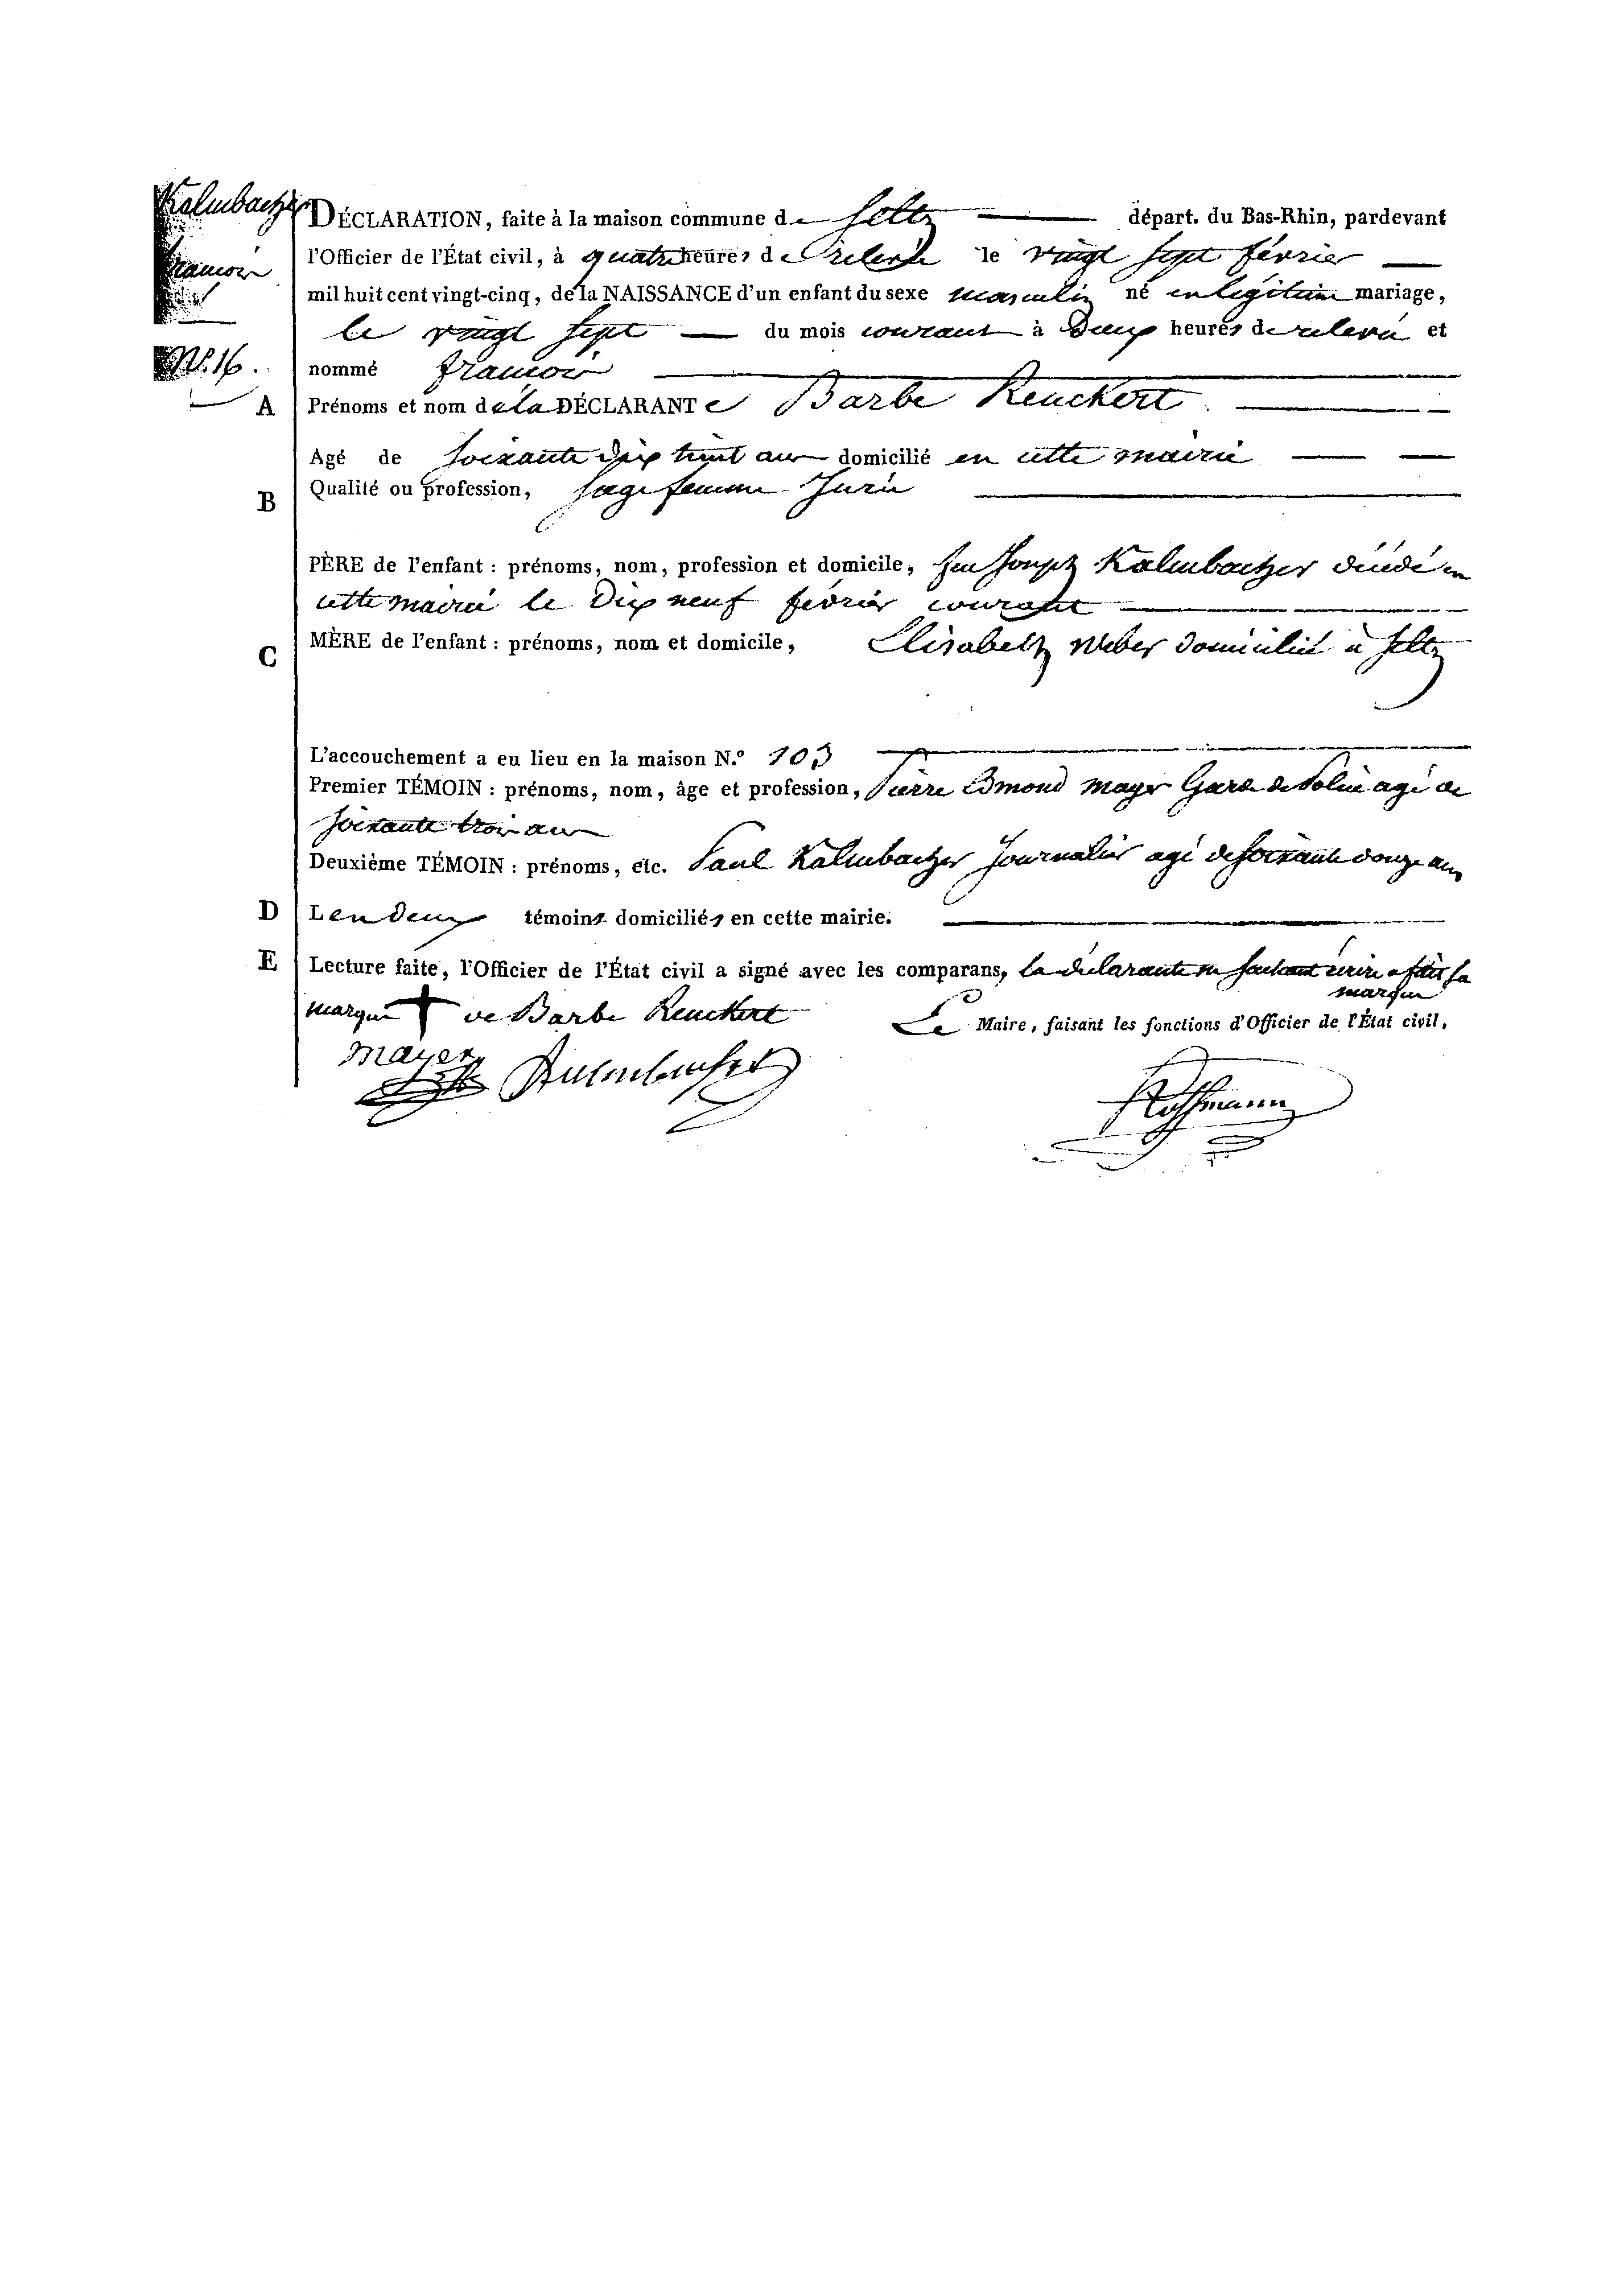 Kalmbacher
DÉCLARATION, faite à la maison commune de Seltz départ. du Bas-Rhin, pardevant
l'Officier de l'État civil, à quatre heures de relevée le vingt sept février
françois
mil huit cent vingt-cinq, de la NAISSANCE d'un enfant du sexe masculin né en légitime mariage,
le vingt sept du mois courant à deux heures de relevée et
N. 16.
nommé françois
A Prénoms et nom de la DÉCLARANTe Barbe Reuckert
Agé de soixante dix huit ans domicilié en cette mairie
B Qualité ou profession, sage femme Jurée
PÈRE de l'enfant : prénoms, nom, profession et domicile, feu Joseph Kalmbacher décédé en
cette mairie le dix neuf février courant
C MÈRE de l'enfant : prénoms, nom et domicile, Elisabeth Weber domiciliée à Seltz
L'accouchement a eu lieu en la maison N.º 103
Premier TÉMOIN : prénoms, nom, âge et profession, Pierre Edmond Mayer Garde de Police agé de
soixante trois ans
Deuxième TÉMOIN : prénoms, etc. Paul Kalmbacher Journalier agé de soixante douze ans
D Les deux témoins domiciliés en cette mairie.
E Lecture faite, l'Officier de l'État civil a signé avec les comparans, la déclarante ne sachant écrire a fait sa
marque
marque de Barbe Reuckert
Le Maire, faisant les fonctions d'Officier de l'État civil,
Mayer Kalmbacher
Hoffmann